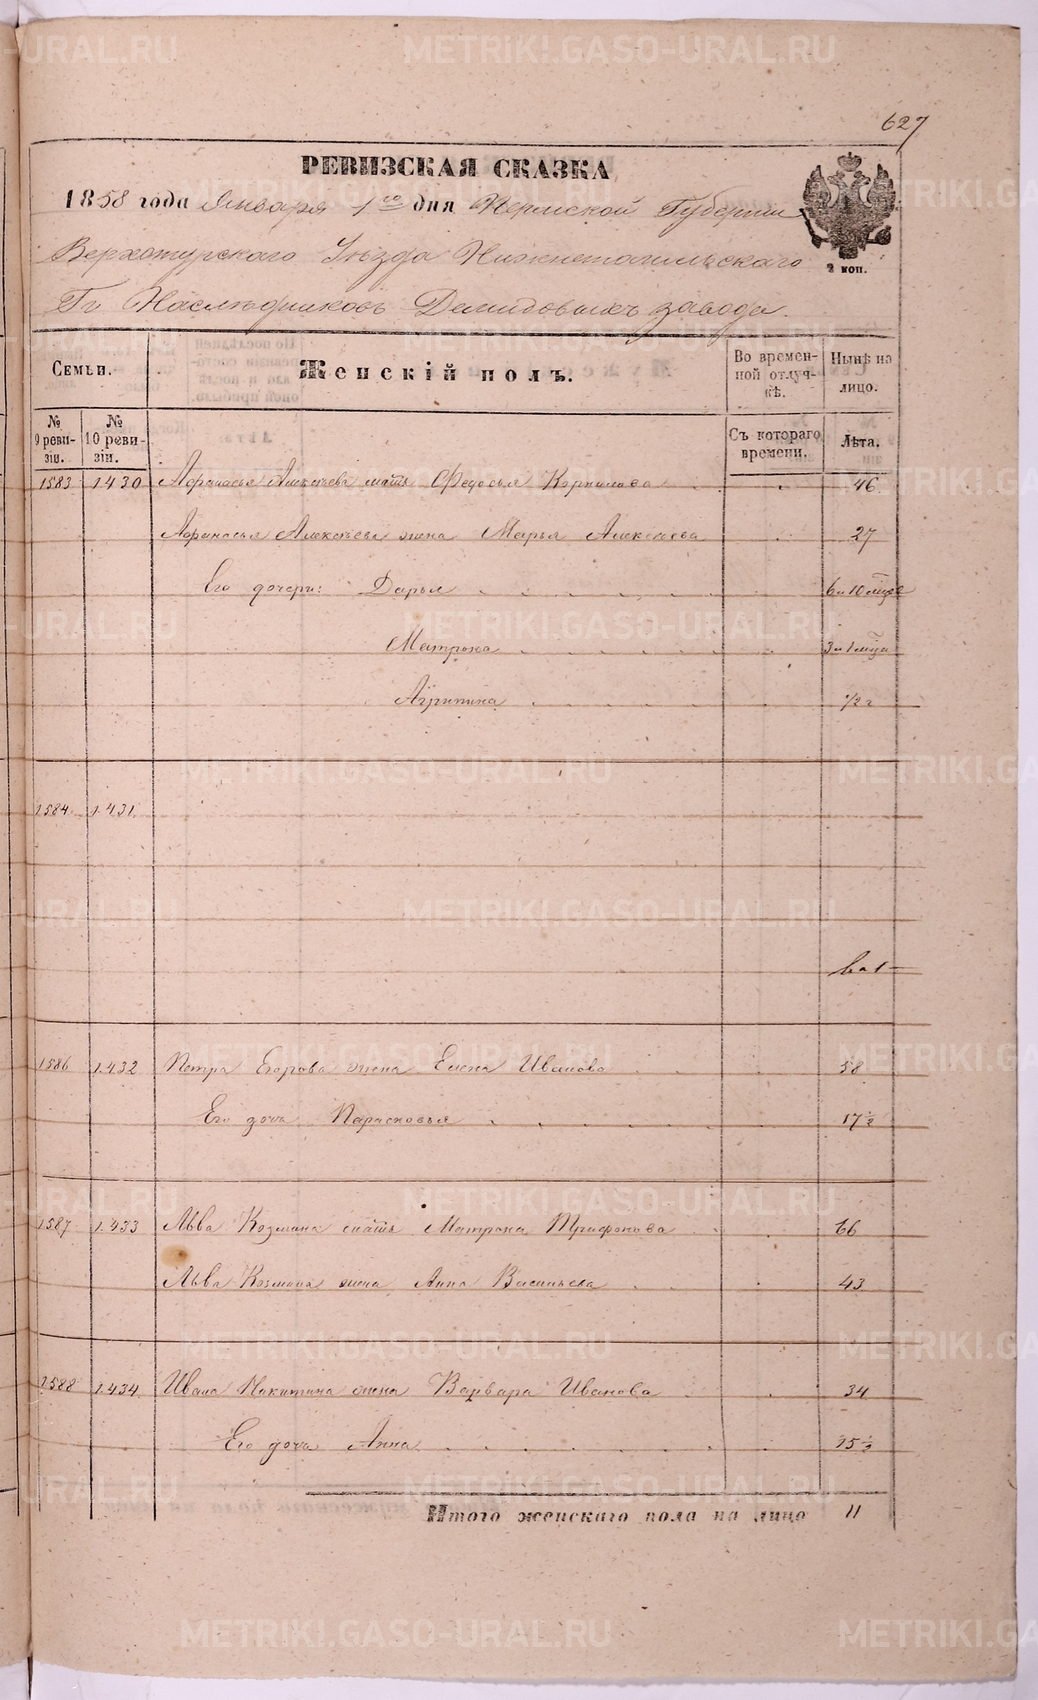 627
РЕВИЗСКАЯ СКАЗКА
1858 года Января 1го дня Пермской Губернии
2 коп.
Верхотурского Уѣзда Нижнетагильскаго
Гг. Наслѣдниковъ Демидовыхъ завода.
Семьи. Женскій полъ. Во временной отлучкѣ. Нынѣ на лицо.
№ 9 ревизіи. № 10 ревизіи. Съ котораго времени. Лѣта.
1583 1430 Афанасья Алексѣева мать Федосья Корнилова 46
Афанасья Алексѣева жена Марья Алексѣева 27
Его дочери: Дарья 6 и 10 мцевъ
Матрона 3 и 1 мца
Агрипина 1/2 г
1584 1431
1586 1432 Петра Егорова жена Елена Иванова 58
Его дочь Парасковья 17 1/2
1587 1433 Льва Козмина мать Матрона Трифонова 66
Льва Козмина жена Анна Васильева 43
1588 1434 Ивана Никитина жена Варвара Иванова 34
Его дочь Анна 15 1/2
Итого женскаго пола на лицо 11
METRIKI.GASO-URAL.RU